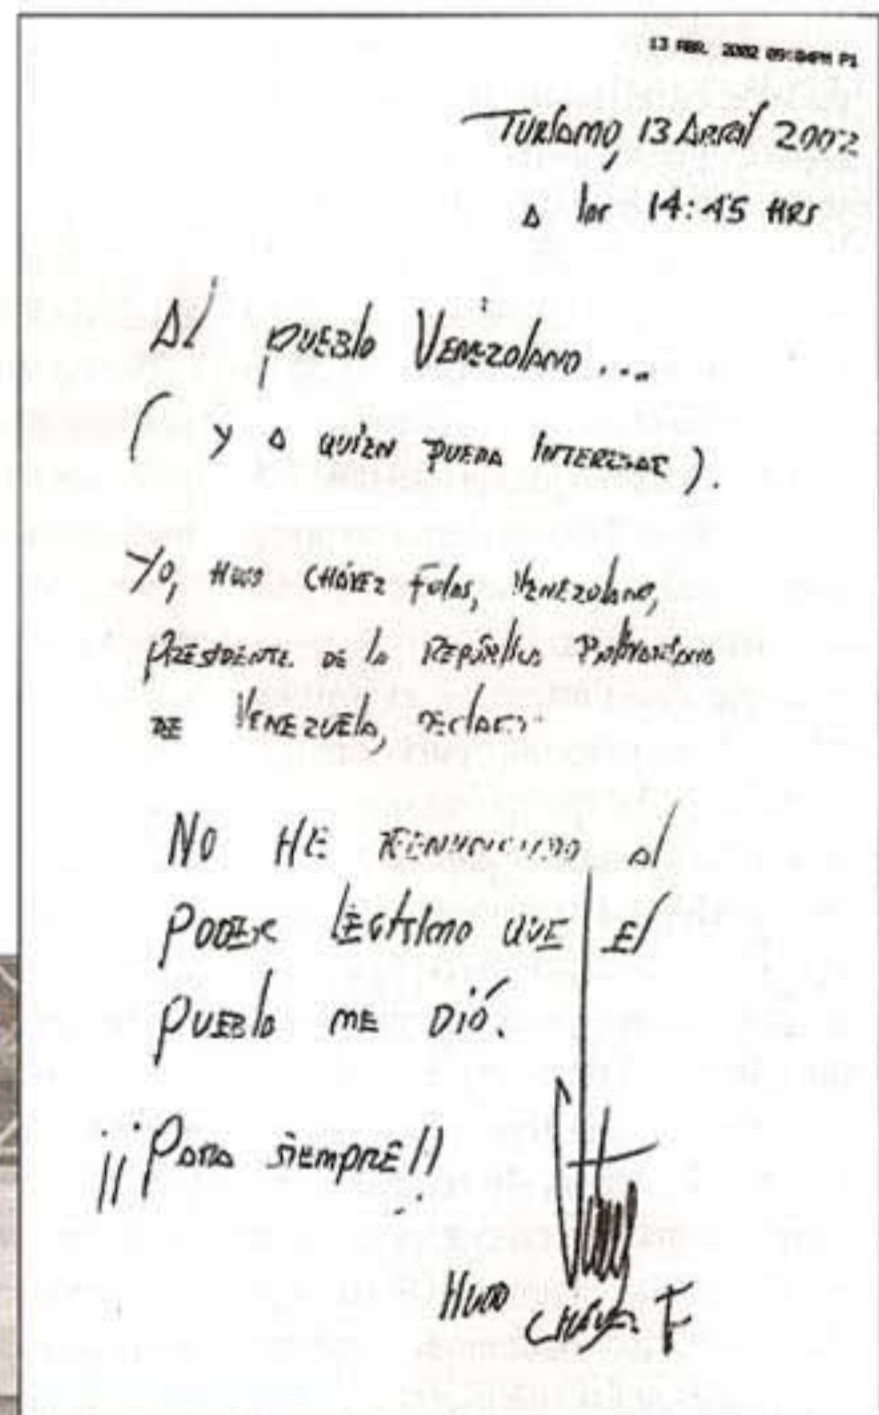 13 ABR. 2002 09:04PM P1
TURIAMO, 13 Abril 2002
A las 14:45 HRS
Al pueblo Venezolano...
( y a quien pueda interesar ).
Yo, Hugo Chávez Frías, Venezolano,
Presidente de la República Bolivariana
de Venezuela, declaro:
NO HE renunciado al
poder legítimo que el
pueblo me dió.
¡¡Para siempre!!
Hugo Chávez F